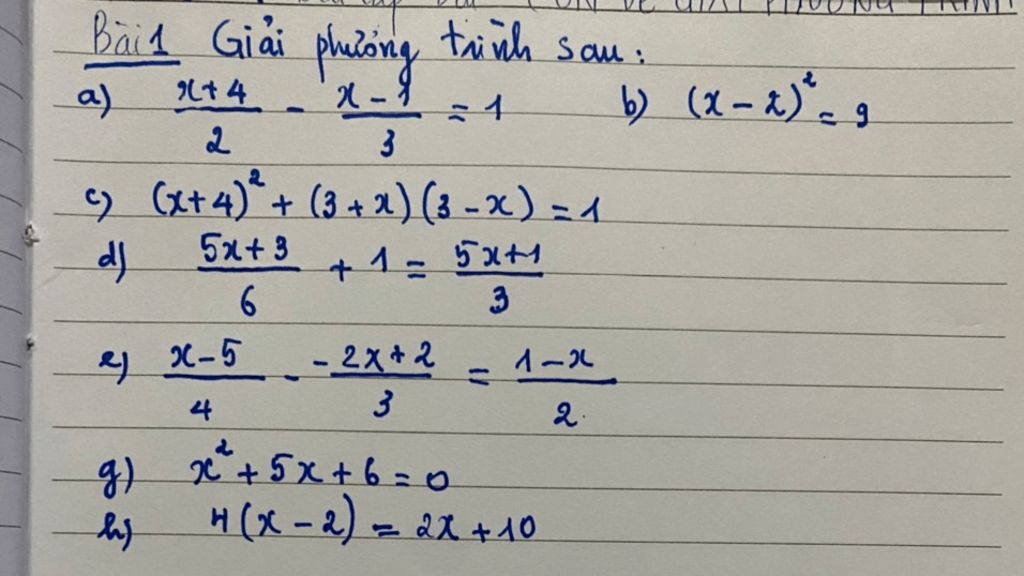 Bài 1 Giải phương trình sau:
a) \frac{x+4}{2} - \frac{x-1}{3} = 1 b) (x-2)² = 9
c) (x+4)² + (3+x)(3-x) = 1
d) \frac{5x+3}{6} + 1 = \frac{5x+1}{3}
e) \frac{x-5}{4} - \frac{-2x+2}{3} = \frac{1-x}{2}
g) x² + 5x + 6 = 0
h) 4(x-2) = 2x + 10